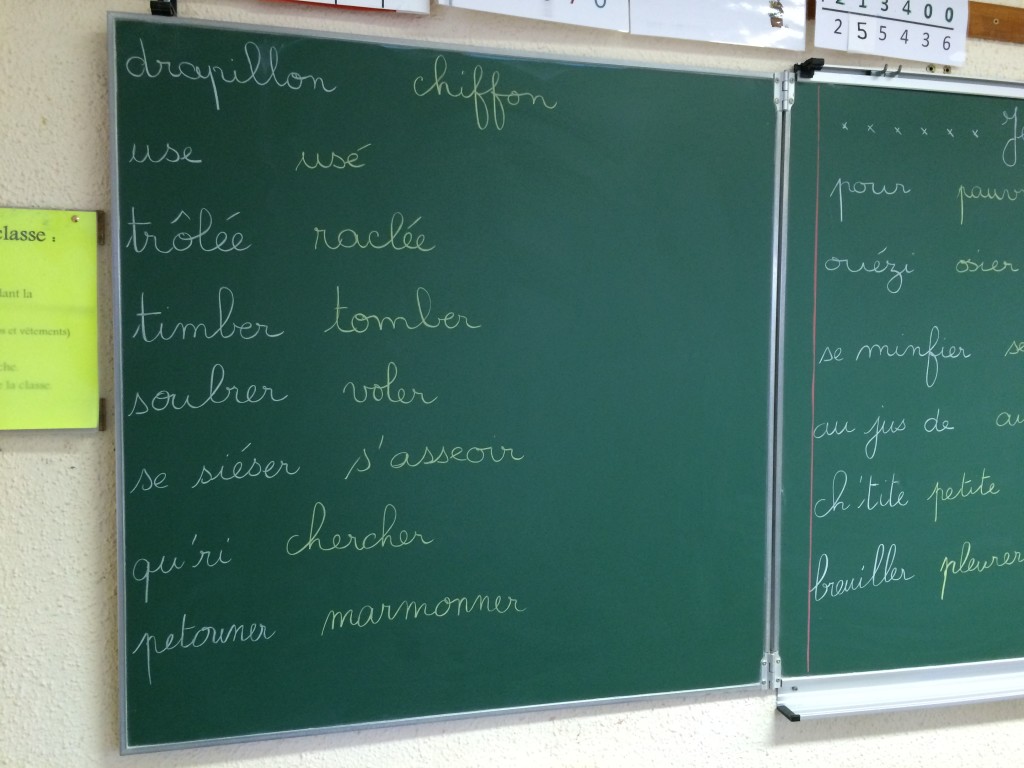 2 1 3 4 0 0
2 5 5 4 3 6
drapillon chiffon
use usé
trôlée raclée
timber tomber
soulrer voler
se siéser s'asseoir
qu'ri chercher
petouner marmonner
classe :
dant la
s et vêtements)
che.
e la classe
x x x x x x
pour pauv
ouézi osier
se minfier se
au jus de au
ch'tite petite
breuiller pleurer